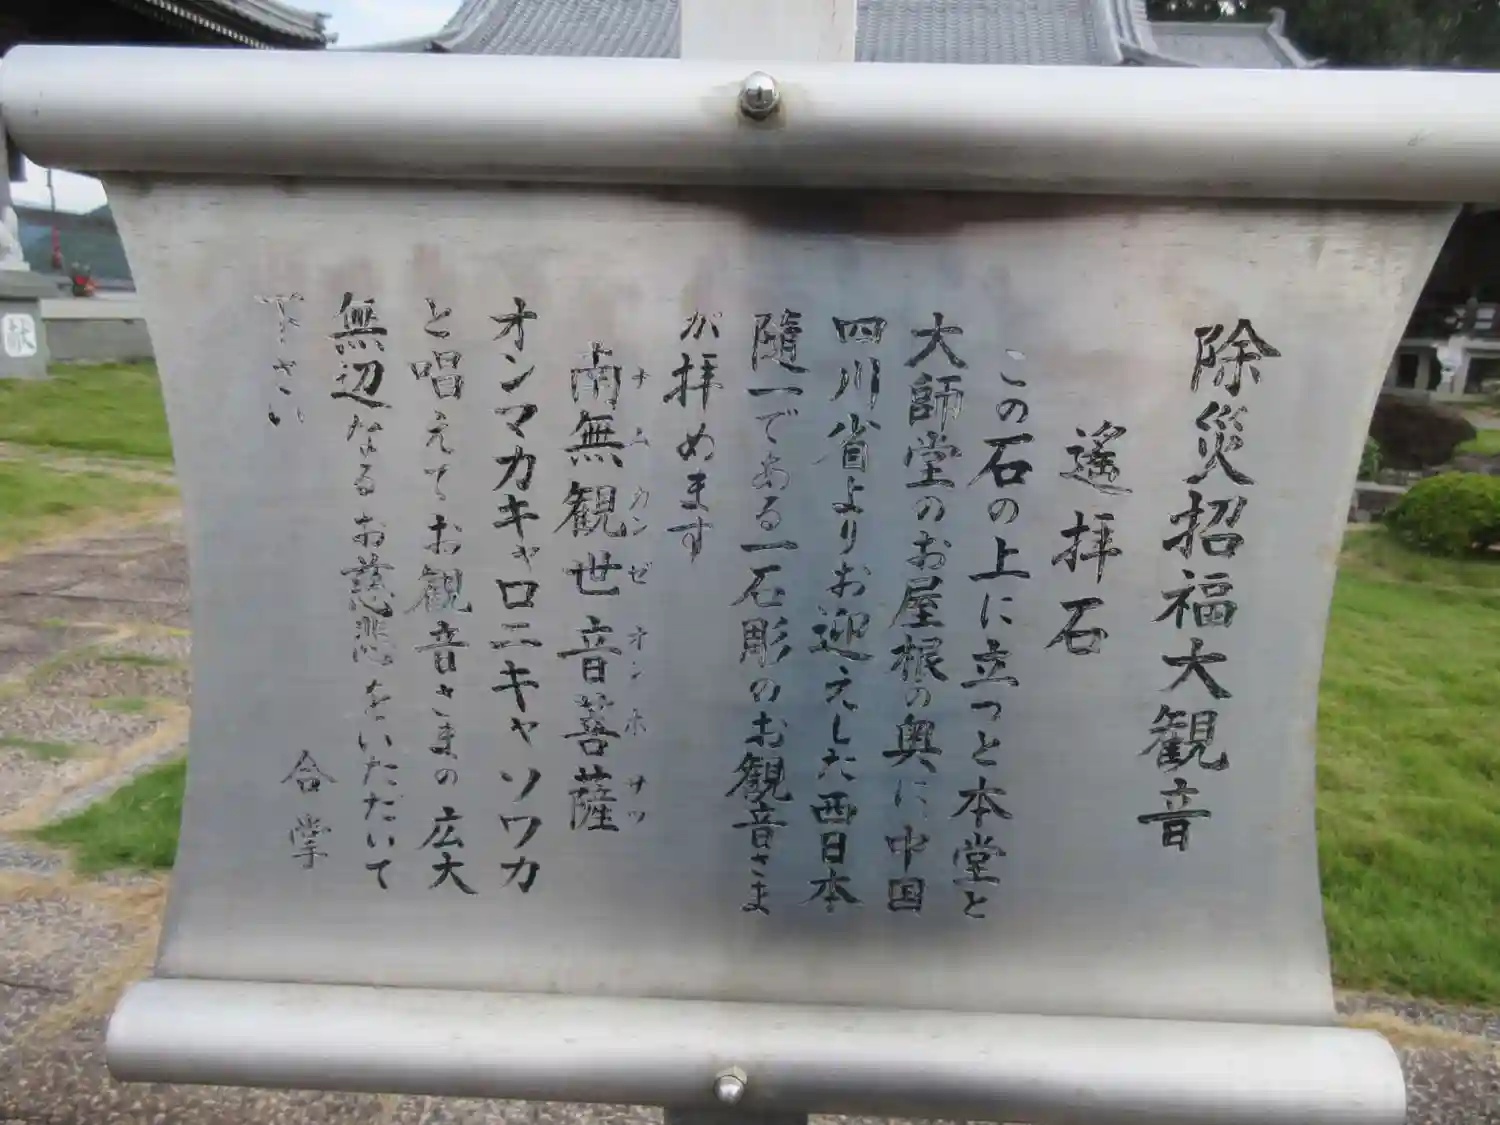 除災招福大観音
遙拝石
この石の上に立つと本堂と
大師堂のお屋根の奥に中国
四川省よりお迎えした西日本
随一である一石彫のお観音さま
が拝めます
南無観世音菩薩
ナムカンゼオンボサツ
オンマカキャロニキャソワカ
と唱えてお観音さまの広大
無辺なるお慈悲をいただいて
下さい
合掌
献